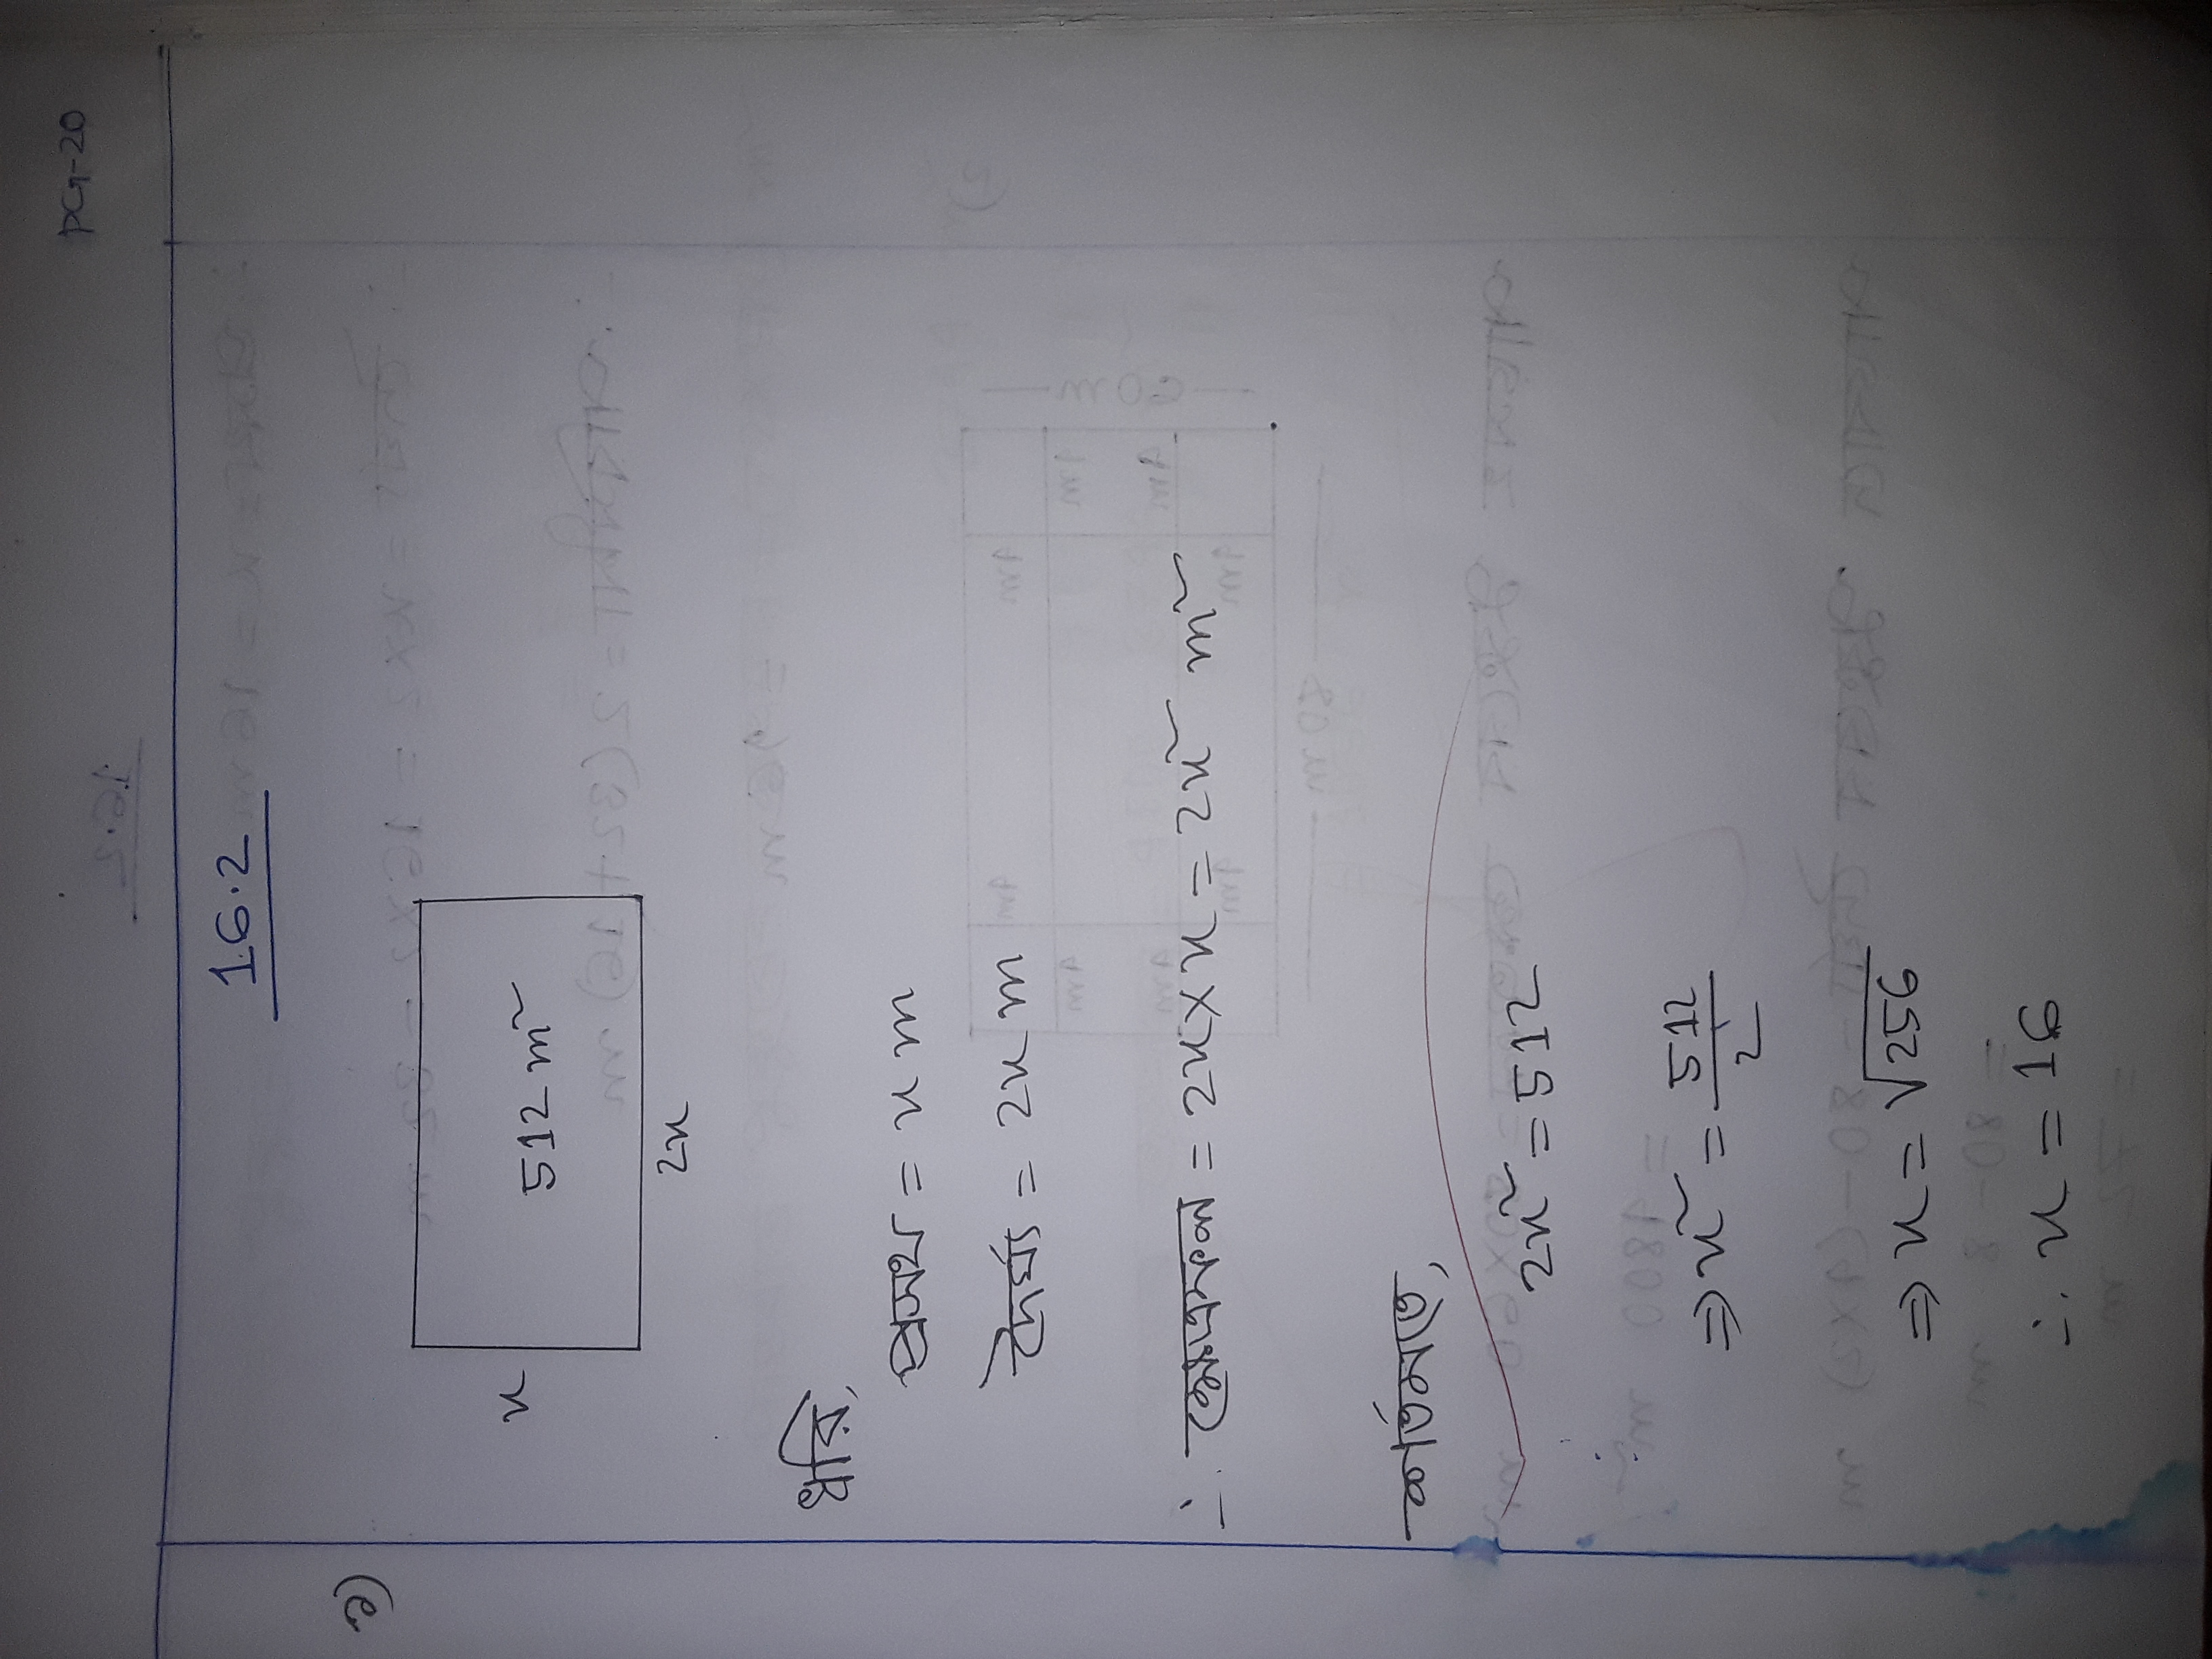 PG-20
16.2
১)
x
512 m²
2x
ধরি,
প্রসথ = x m
দৈর্ঘ্য = 2x m
∴ ক্ষেত্রফল = 2x×x = 2x² m²
শর্তমতে,
2x² = 512
⇒ x² = 512/2
⇒ x = √256
∴ x = 16